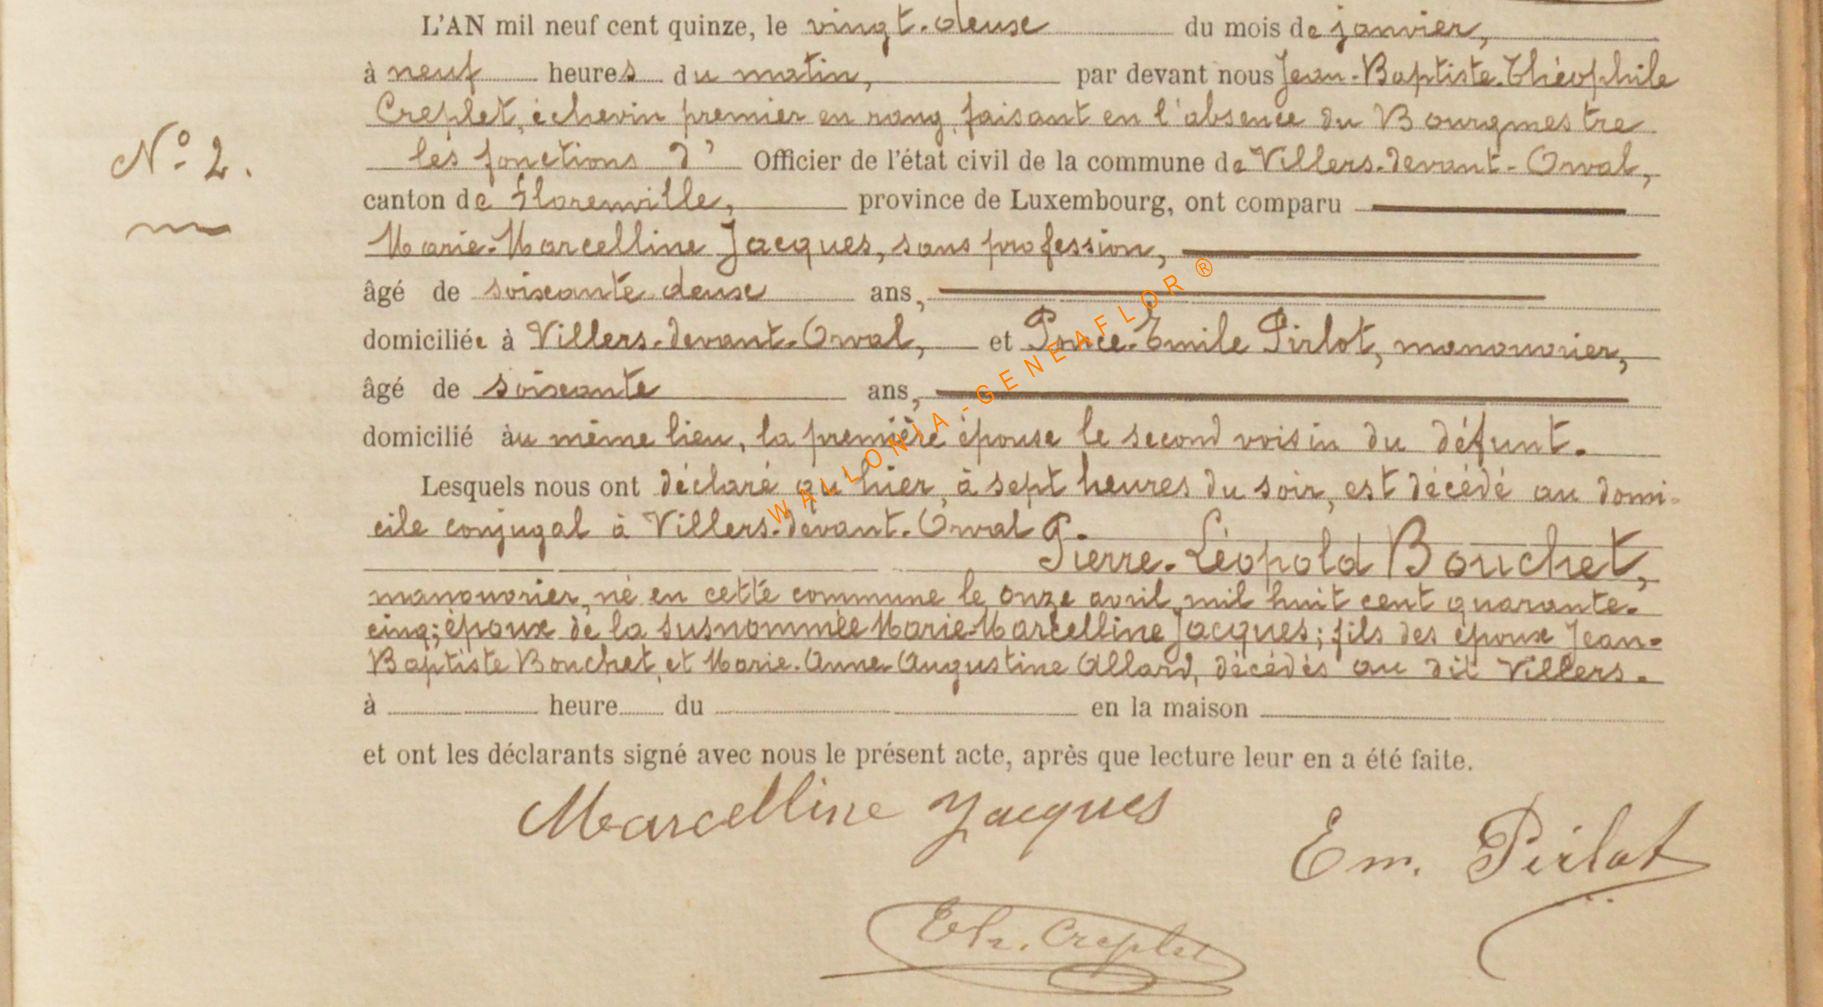 L'AN mil neuf cent quinze, le vingt-deux du mois de janvier,
à neuf heures du matin, par devant nous Jean-Baptiste-Théophile
Creplet, échevin premier en rang, faisant en l'absence du Bourgmestre
N° 2. les fonctions d' Officier de l'état civil de la commune de Villers-devant-Orval,
canton de Florenville, province de Luxembourg, ont comparu
Marie-Marcelline Jacques, sans profession,
âgé de soixante deux ans,
domiciliée à Villers-devant-Orval, et Ponce-Emile Pirlot, manouvrier,
âgé de soixante ans,
domicilié au même lieu, la première épouse le second voisin du défunt.
Lesquels nous ont déclaré qu'hier, à sept heures du soir, est décédé au domi-
cile conjugal à Villers-devant-Orval
Pierre-Léopold Bouchet,
manouvrier, né en cette commune le onze avril mil huit cent quarante-
cinq; époux de la susnommée Marie-Marcelline Jacques; fils des époux Jean-
Baptiste Bouchet, et Marie-Anne-Augustine Allard, décédés au dit Villers.
à heure du en la maison
et ont les déclarants signé avec nous le présent acte, après que lecture leur en a été faite.
Marcelline Jacques
Em. Pirlot
Th. Creplet
WALLONIA-GENEAFLOR ®